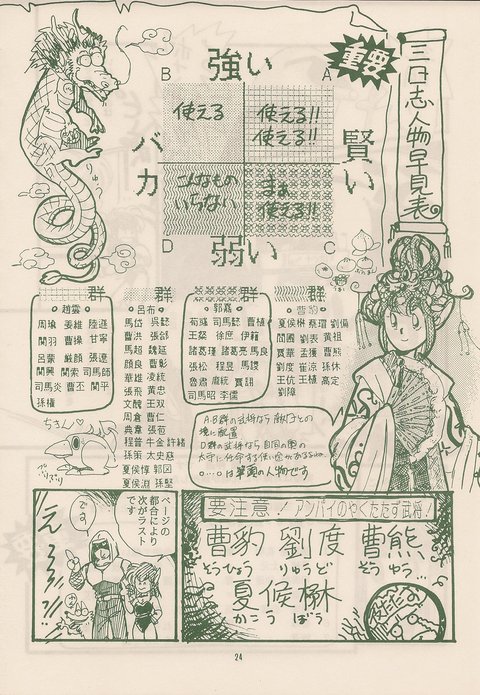 重要
三国志人物早見表。
強い
B
A
使える
使える!!
使える!!
バカ
賢い
こんなもの
いらない
まぁ
使える!!
D
C
弱い
群
群
群
群
◦趙雲◦
周瑜 姜維 陸遜
関羽 曹操 甘寧
呂蒙 厳顔 張遼
関興 関索 司馬師
司馬炎 曹丕 関平
孫権
◦呂布◦
馬岱 呉懿
曹洪 張郃
馬超 魏延
顔良 曹彰
華雄 凌統
張飛 黄忠
文醜 王双
周倉 曹仁
典韋 張苞
程普 牛金 許褚
孫策 太史慈
夏侯惇 郭図
夏侯淵 孫堅
◦郭嘉◦
荀彧 司馬懿 曹植
王粲 徐庶 伊籍
諸葛瑾 諸葛亮 馬良
張松 程昱 馬謖
魯粛 麻統 賈詡
司馬昭 李儒
◦曹豹◦
夏侯楙 蔡瑁 劉備
闞圃 劉表 黄祖
賈華 孟獲 曹熊
劉度 崔涼 孫休
王伉 王植 高定
劉障
A・B群の武将なら敵国との
境に配置
D群の武将なら自国の奥の
太守に任命する使い道があるゆえ
◦…◦は筆頭の人物です
ちろん
ページの
都合により
次がラスト
です
です。
え
要注意! アンパイのやくたたず武将!
曹豹 劉度 曹熊
そうひょう りゅうど そうゆう…
夏候楙
かこう ぼう
24